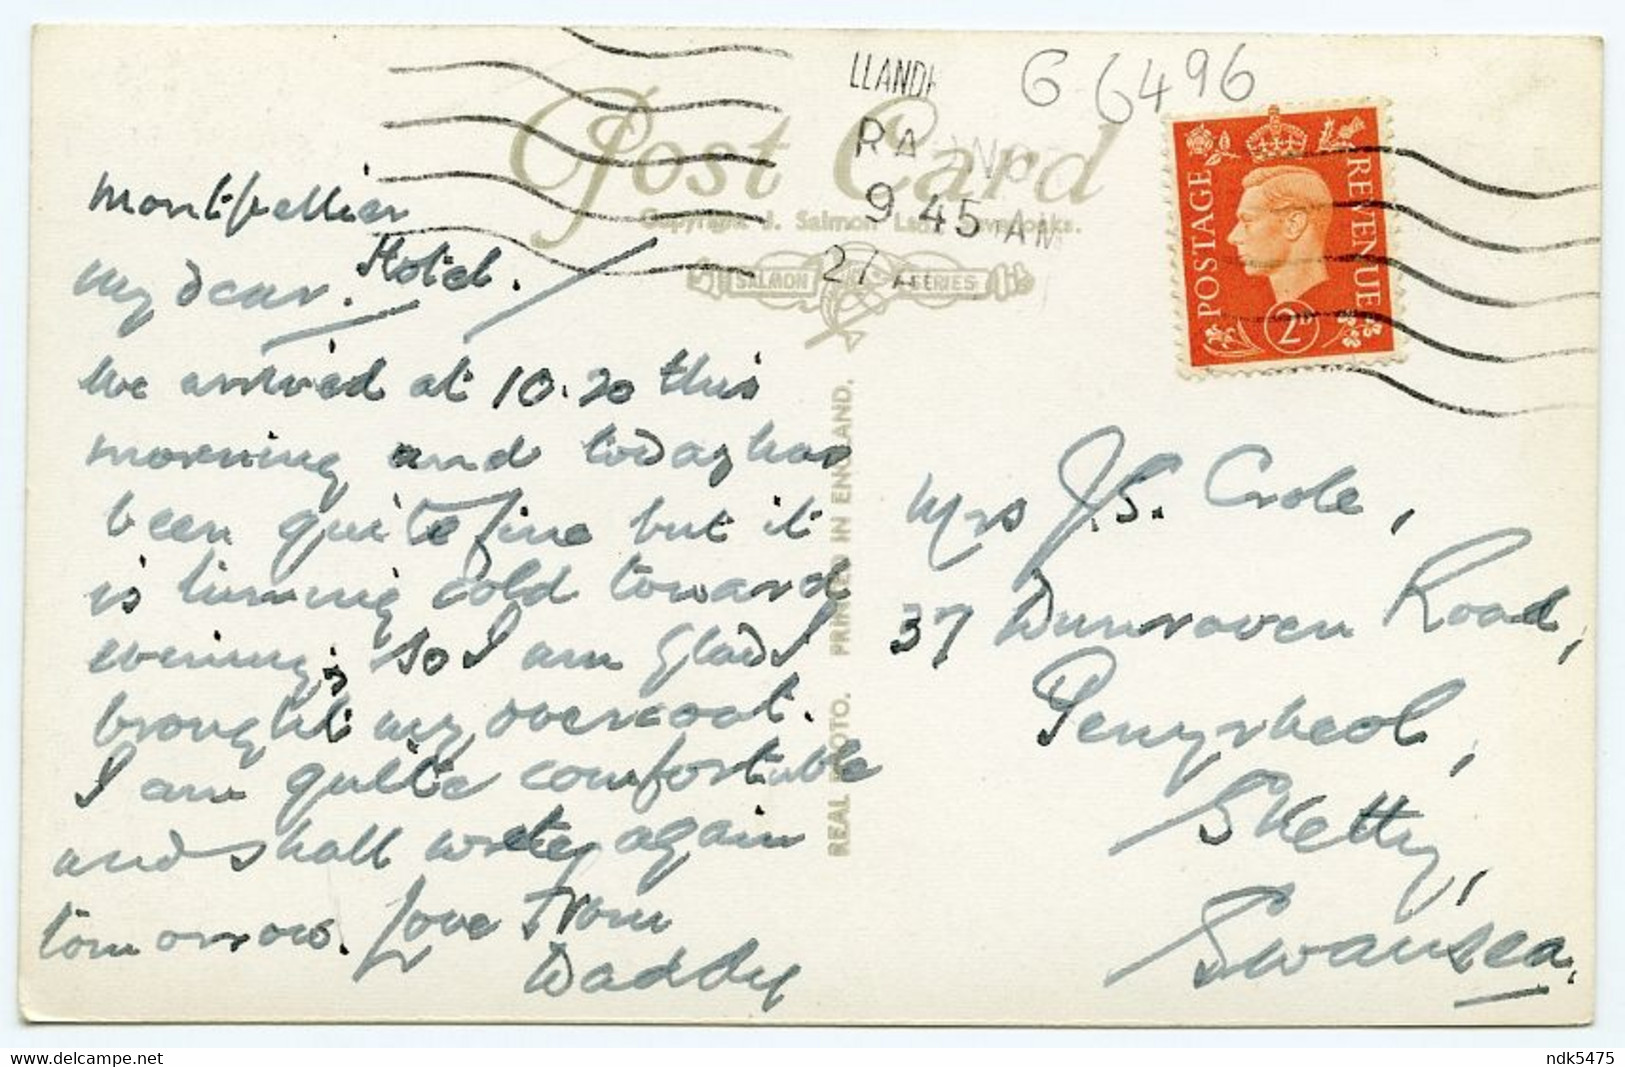 Post Card
Copyright J. Salmon Ltd. Sevenoaks.
SALMON SERIES
REAL PHOTO. PRINTED IN ENGLAND.
LLAND
9 45 AM
27
G 6496
POSTAGE REVENUE
2D
Montpellier
Hotel.
My dear.
We arrived at 10.20 this
morning and today has
been quite fine but it
is turning cold toward
evening, so I am glad I
brought my overcoat.
I am quite comfortable
and shall write again
tomorrow. Love from
Daddy
Mrs J.S. Crole,
37 Dunraven Road,
Penyrheol,
Sketty,
Swansea.
ndk5475